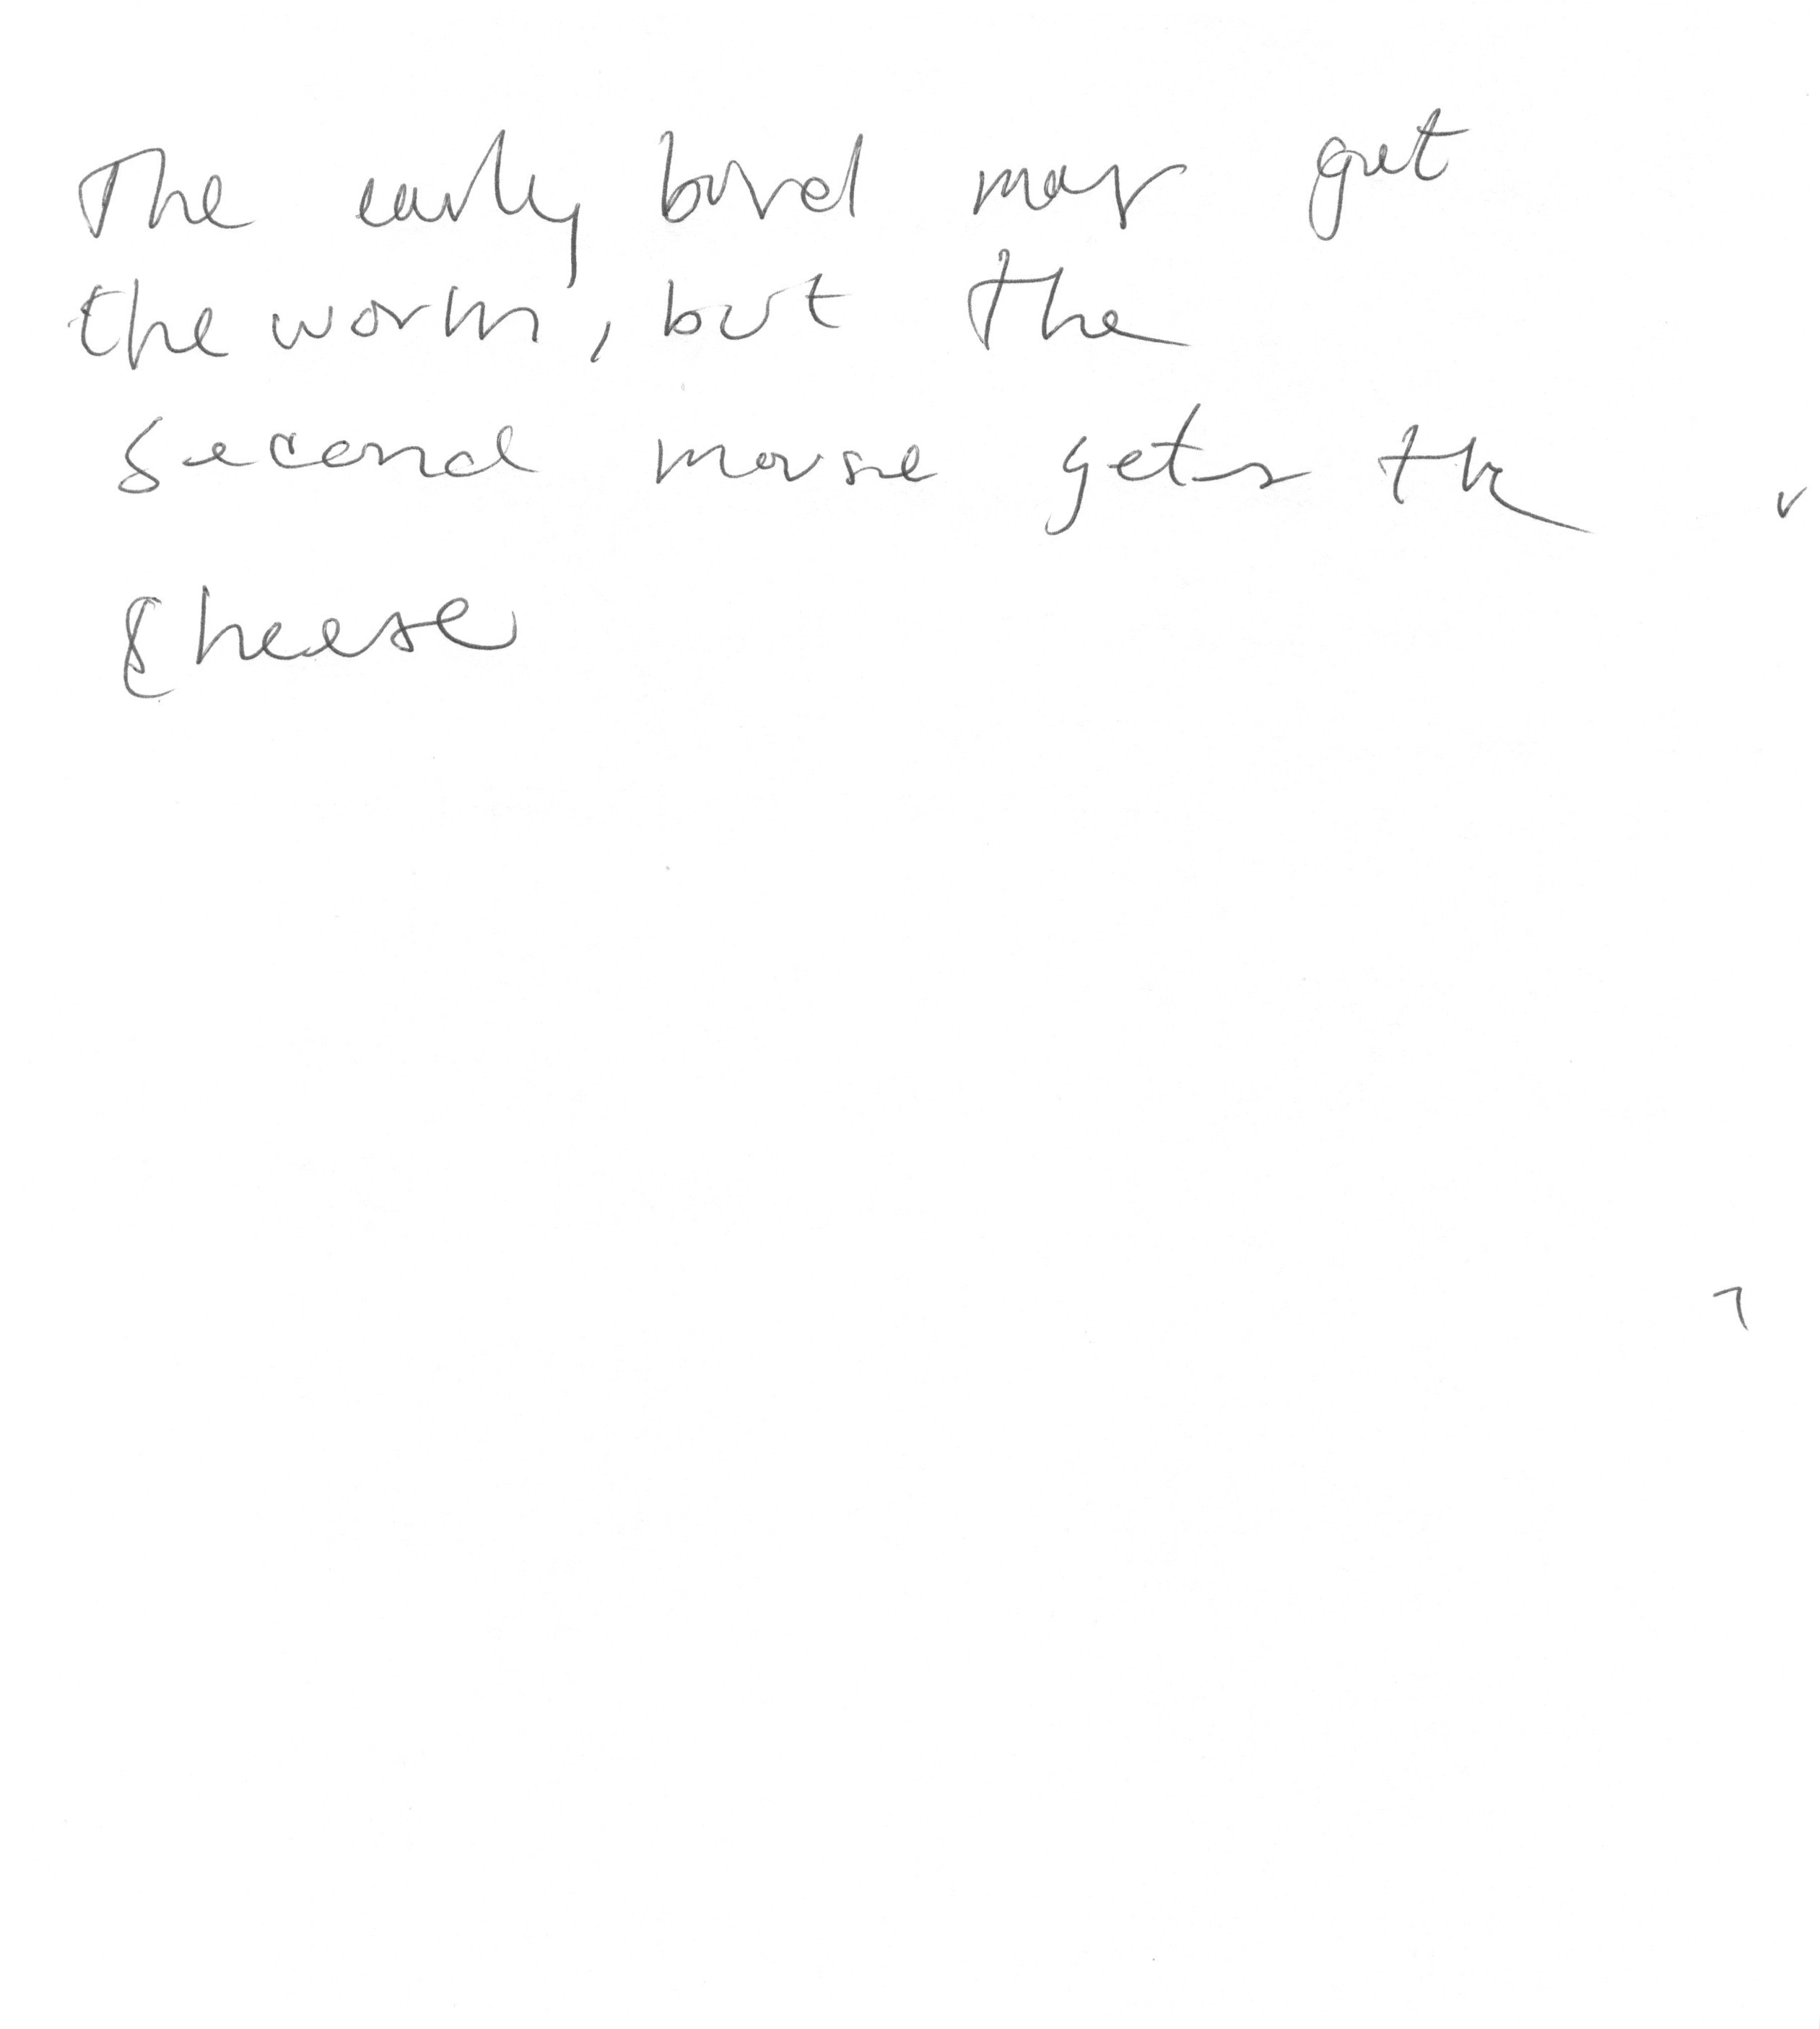 The early bird may get
the worm, but the
second mouse gets the
cheese